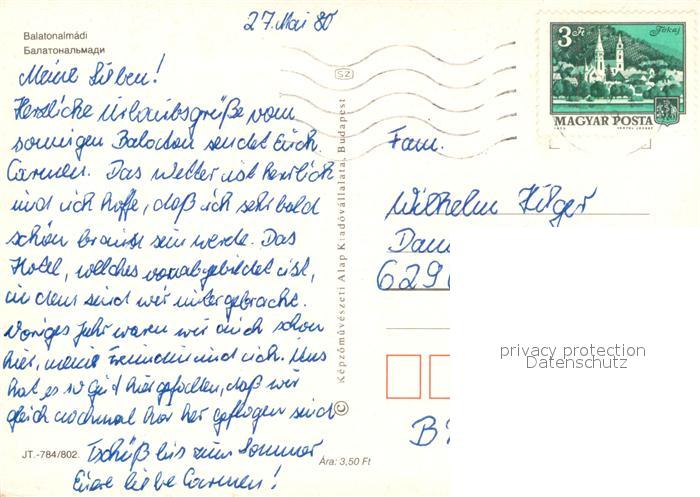 27. Mai 80
Balatonalmádi
Балатональмади
Meine Lieben!
Herzliche Urlaubsgrüße vom
sonnigen Balaton sendet Euch
Carmen. Das Wetter ist herrlich
und ich hoffe, daß ich sehr bald
schön braun sein werde. Das
Hotel, welches vorn abgebildet ist,
in dem sind wir untergebracht.
Voriges Jahr waren wir auch schon
hier, meine Freundin und ich. Uns
hat es so gut hier gefallen, daß wir
gleich nochmal hier her geflogen sind
Tschüß bis zum Sommer
Eure liebe Carmen!
JT.-784/802.
Ára: 3,50 Ft
© Képzőművészeti Alap Kiadóvállalata, Budapest
SZ
3 Ft
Tokaj
MAGYAR POSTA
Fam.
Wilhelm Hilger
629
privacy protection
Datenschutz